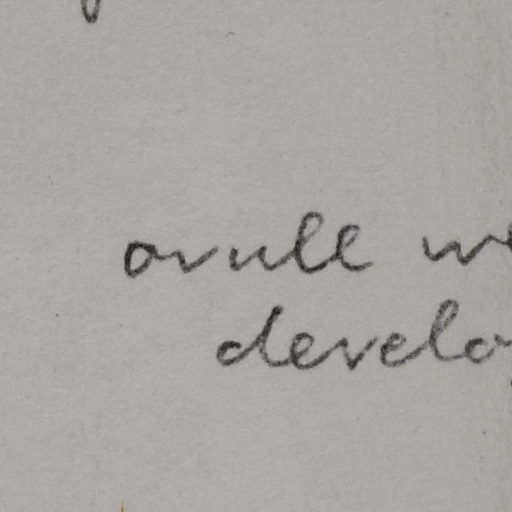 ovule we
develo